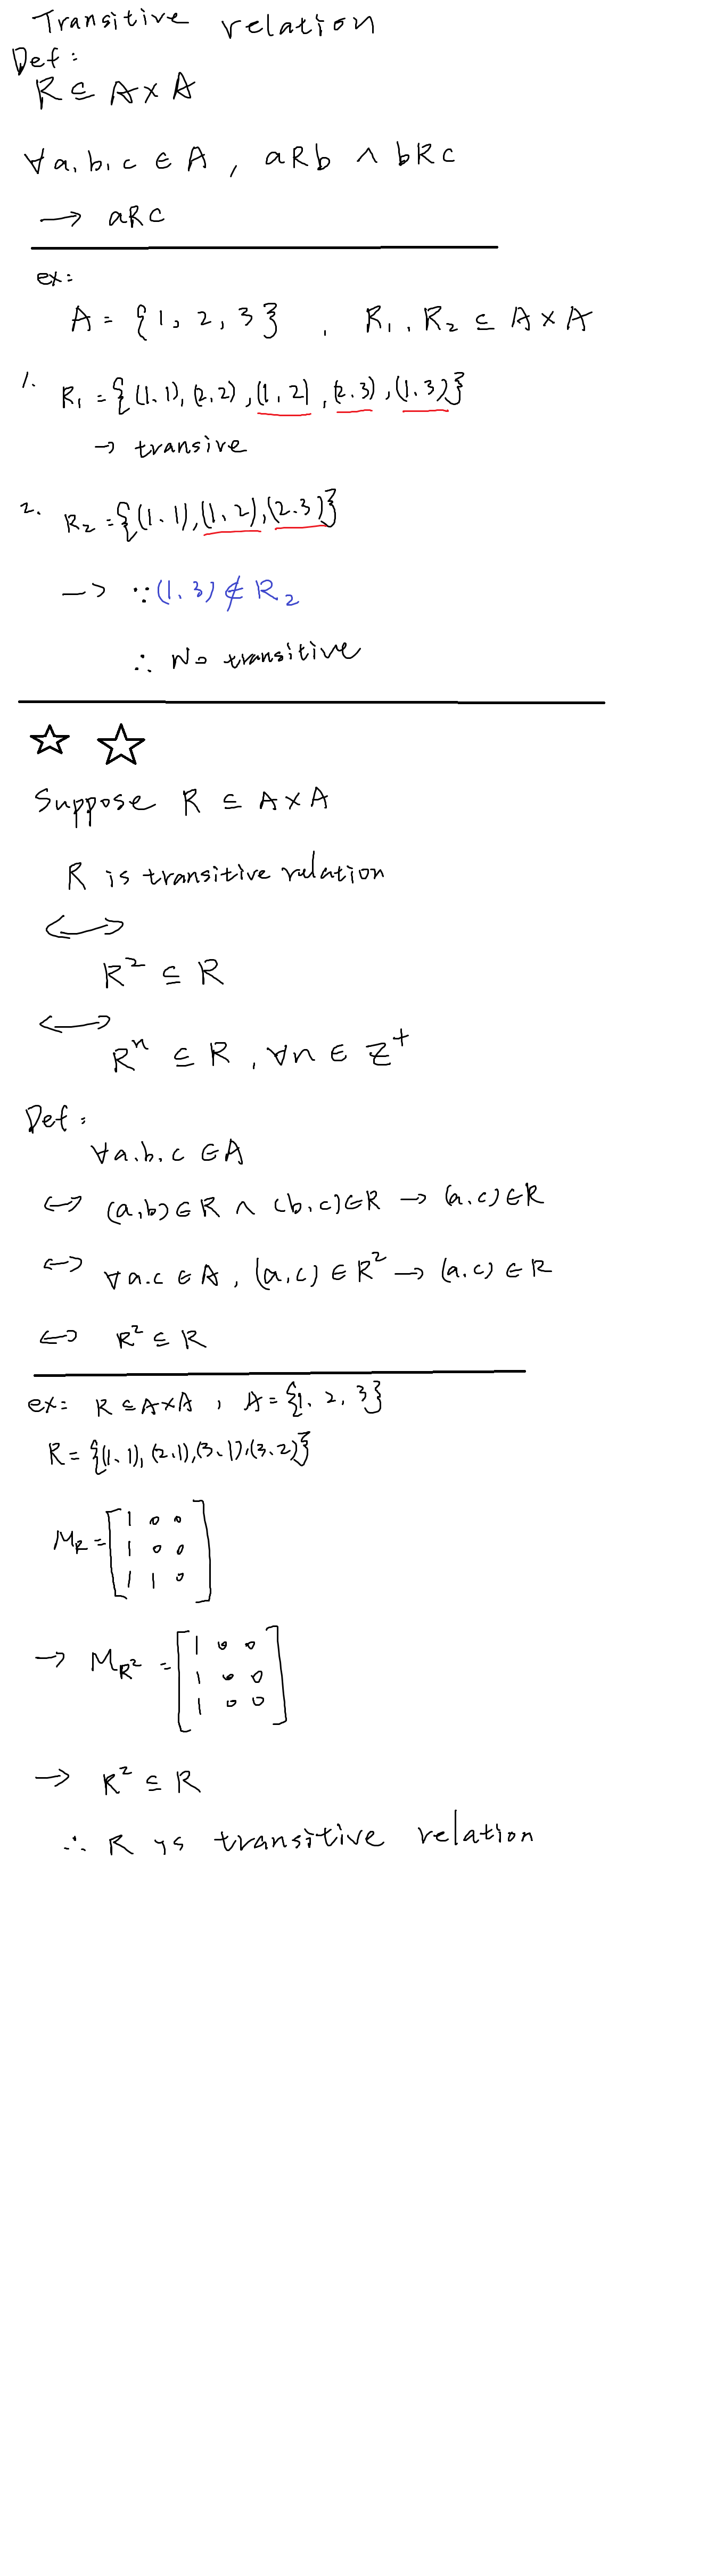 Transitive relation
Def:
R ⊆ A×A
∀a,b,c ∈ A , aRb ∧ bRc
→ aRc
ex:
A = {1, 2, 3} , R₁, R₂ ⊆ A×A
1. R₁ = {(1,1), (2,2), (1,2), (2,3), (1,3)}
→ transive
2. R₂ = {(1,1), (1,2), (2,3)}
→ ∵ (1,3) ∉ R₂
∴ No transitive
☆ ☆
Suppose R ⊆ A×A
R is transitive relation
⟷
R² ⊆ R
⟷
Rⁿ ⊆ R, ∀n ∈ Z⁺
Def:
∀a,b,c ∈ A
↔ (a,b)∈R ∧ (b,c)∈R → (a,c)∈R
↔ ∀a,c ∈ A, (a,c) ∈ R² → (a,c) ∈ R
↔ R² ⊆ R
ex: R ⊆ A×A , A = {1, 2, 3}
R = {(1,1), (2,1), (3,1), (3,2)}
M_R = [1 0 0
1 0 0
1 1 0]
→ M_R² = [1 0 0
1 0 0
1 0 0]
→ R² ⊆ R
∴ R is transitive relation